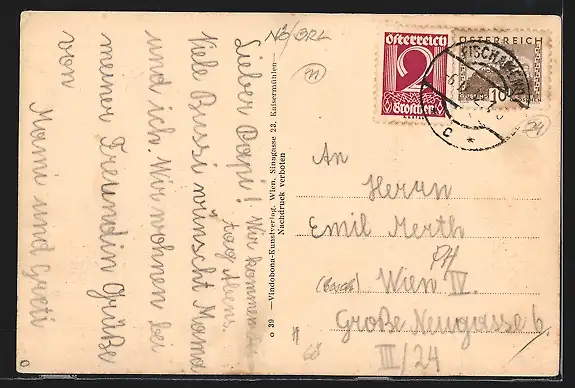 NÖ/BRL
Lieber Papi! Wir kommen
tag Abens.
Viele Bussi wünscht Mama
und ich. Wir wohnen bei
meiner Freundin Grüße
von
Mami und Greti
o 39 —Vindobona-Kunstverlag, Wien, Sinagasse 23, Kaisermühlen—
Nachdruck verboten
Österreich
2
Groschen
ÖSTERREICH
10
FISCHAMEND
C
*
An
Herrn
Emil Merth
PH
Wien IV.
Große Neugasse 6
III/24
24